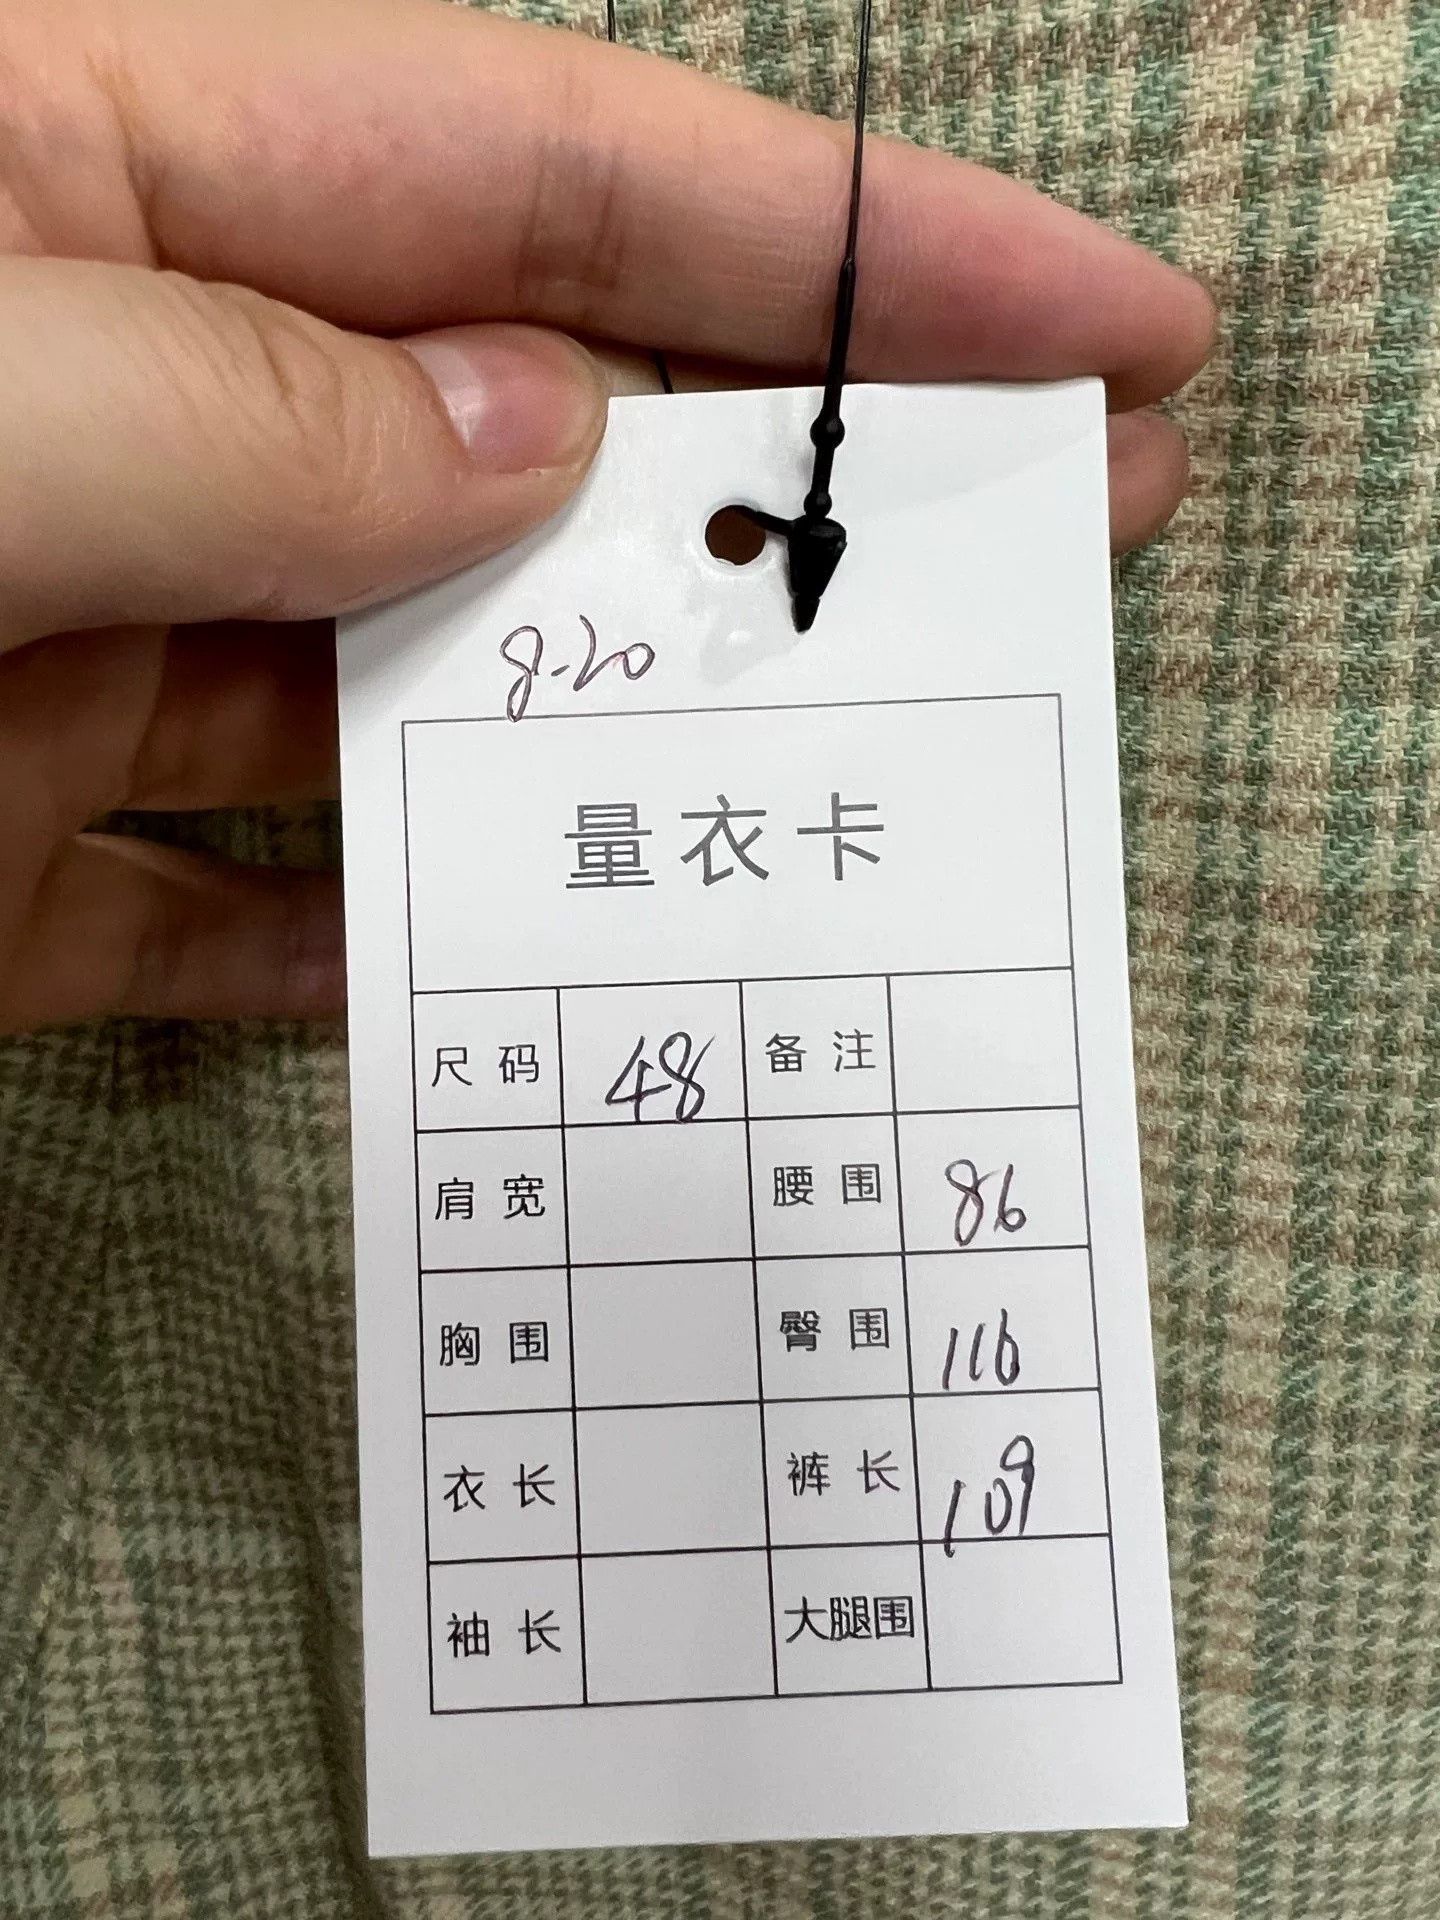 8-20
量衣卡
尺码 48 备注
肩宽 腰围 86
胸围 臀围 116
衣长 裤长 109
袖长 大腿围